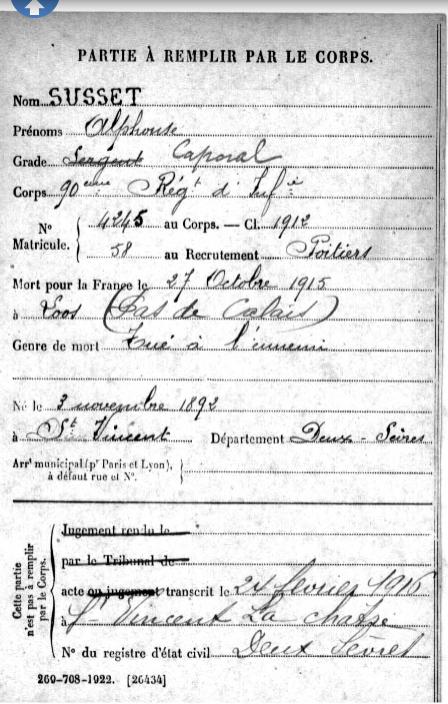 PARTIE À REMPLIR PAR LE CORPS.
Nom SUSSET
Prénoms Alphonse
Grade Sergent Caporal
Corps 90ème Régt d'Infie
No Matricule. 4245 au Corps. — Cl. 1912
58 au Recrutement Poitiers
Mort pour la France le 27 Octobre 1915
à Loos (Pas de Calais)
Genre de mort Tué à l'ennemi
Né le 3 novembre 1892
à St Vincent Département Deux-Sèvres
Arrt municipal (pr Paris et Lyon),
à défaut rue et No.
Cette partie
n'est pas à remplir
par le Corps.
Jugement rendu le
par le Tribunal de
acte ou jugement transcrit le 24 février 1916
à St Vincent La Chatre
No du registre d'état civil Deux Sèvres
260-708-1922. [26434]